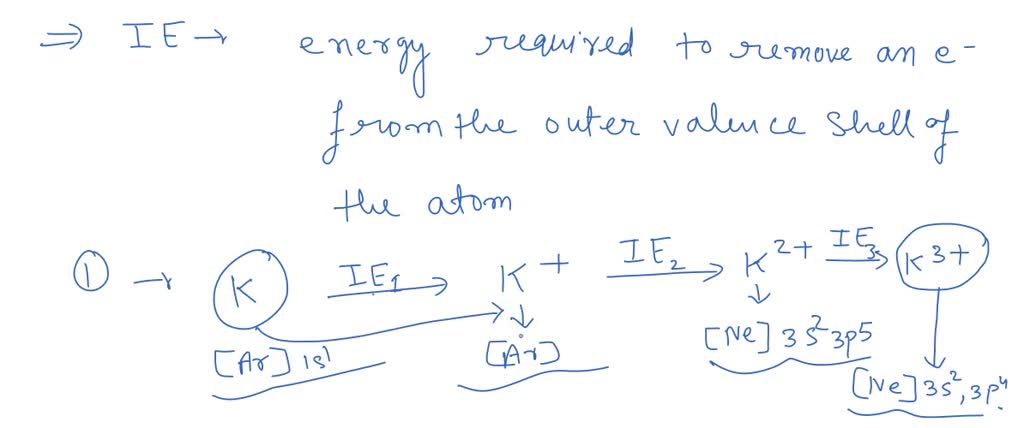 ⇒ IE → energy required to remove an e-
from the outer valence shell of
the atom
① → K IE₁→ K+ IE₂→ K²+ IE₃→ K³+
[Ar] 1s¹ [Ar] [Ne] 3s²3p5
[Ne] 3s², 3p⁴.